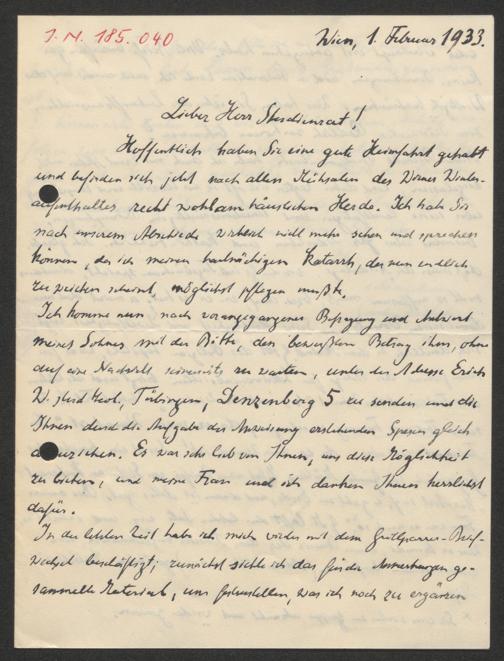 I. N. 185.040
Wien, 1. Februar 1933.
Lieber Herr Studienrat!
Hoffentlich haben Sie eine gute Heimfahrt gehabt
und befinden sich jetzt nach allen Mühsalen des Wiener Winter-
aufenthaltes recht wohl am häuslichen Herde. Ich hab Sie
nach unserem Abschiede wirklich nicht mehr sehen und sprechen
können, da ich meinen hartnäckigen Katarrh, der nun endlich
zu weichen scheint, möglichst pflegen mußte.
Ich komme nun nach vorangegangener Befragung und Antwort
meines Sohnes mit der Bitte, den bewußten Betrag ihm, ohne
auf eine Nachricht seinerseits zu warten, unter der Adresse Erich
W. theol., Tübingen, Denzenberg 5 zu senden und die
Ihnen durch die Aufgabe der Anweisung erstehenden Spesen gleich
abzuziehen. Es war sehr lieb von Ihnen, uns diese Möglichkeit
zu bieten, und meine Frau und ich danken Ihnen herzlichst
dafür.
In der letzten Zeit hab ich mich wieder mit dem Grillparzer-Brief-
wechsel beschäftigt; zunächst sichte ich das für die Anmerkungen ge-
sammelte Material, um festzustellen, was ich noch zu ergänzen